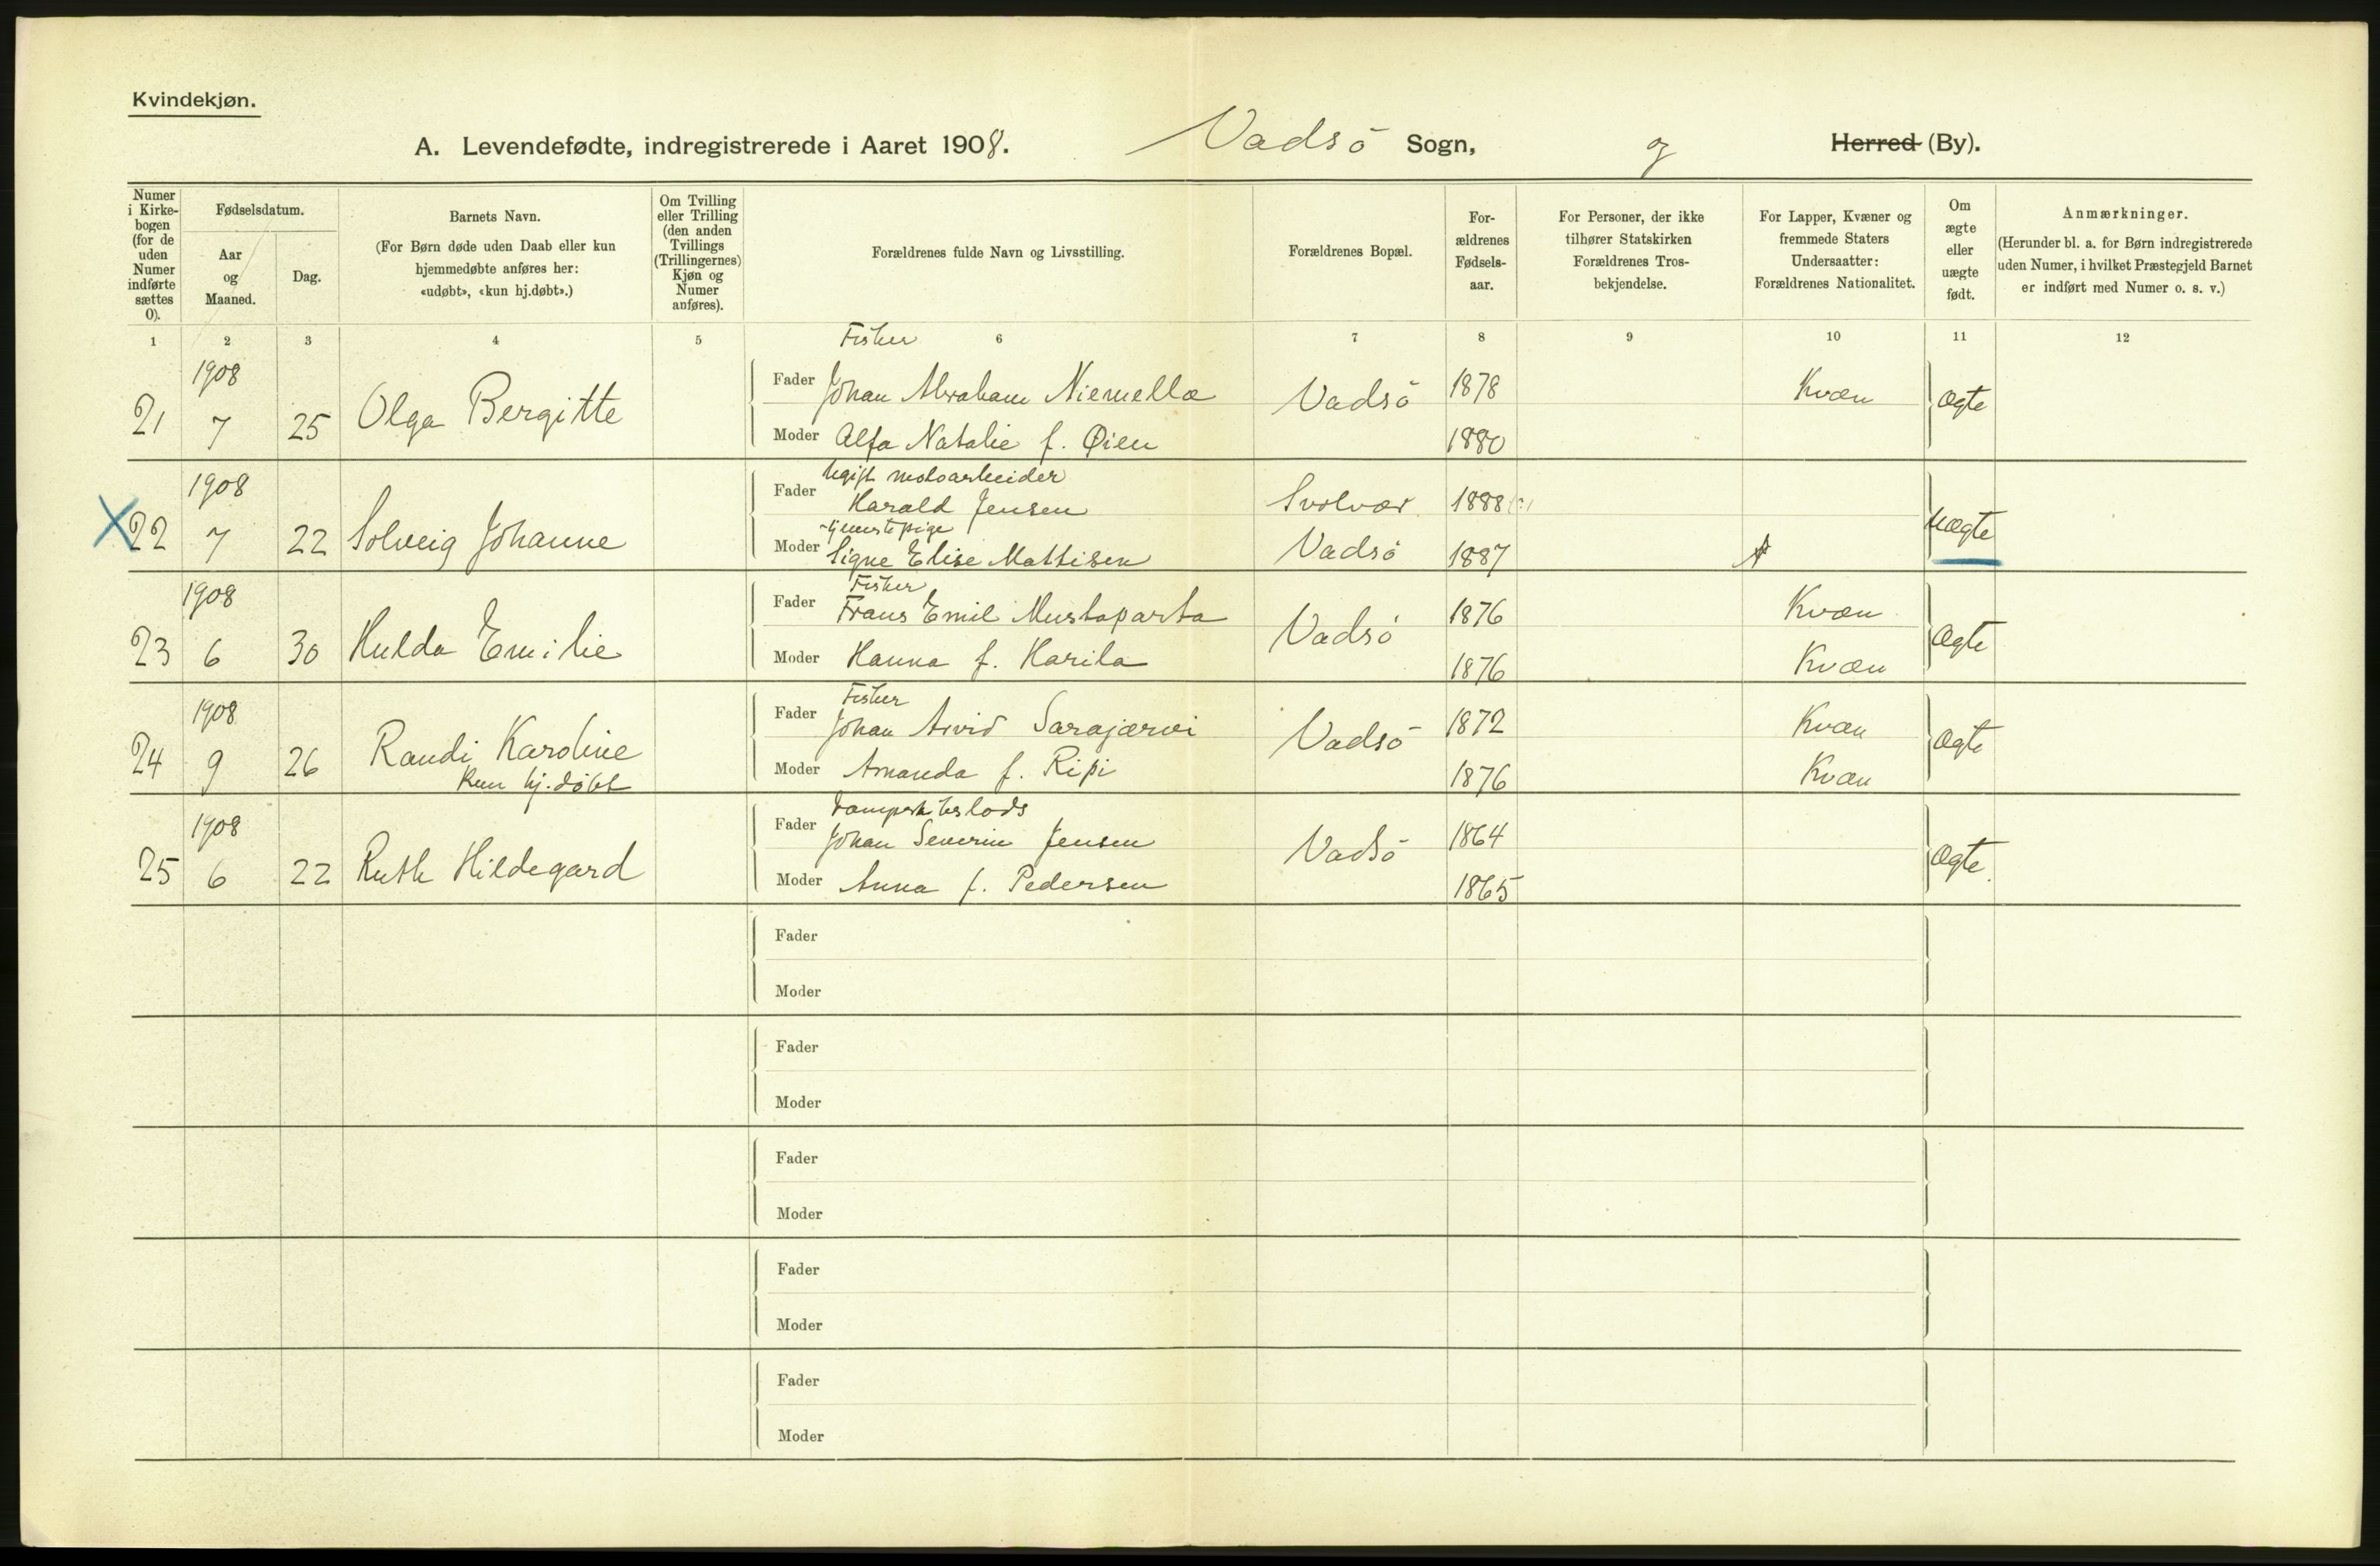 Kvindekjøn.
A. Levendefødte, indregistrerede i Aaret 1908. Vadsö Sogn, og Herred (By).
Numer i Kirkebogen (for de uden Numer indførte sættes 0).
Fødselsdatum.
Aar og Maaned.
Dag.
Barnets Navn.
(For Børn døde uden Daab eller kun hjemmedøbte anføres her: «udøbt», «kun hj.døbt».)
Om Tvilling eller Trilling (den anden Tvillings (Trillingernes) Kjøn og Numer anføres).
Forældrenes fulde Navn og Livsstilling.
Forældrenes Bopæl.
For-ældrenes Fødsels-aar.
For Personer, der ikke tilhører Statskirken Forældrenes Tros-bekjendelse.
For Lapper, Kvæner og fremmede Staters Undersaatter: Forældrenes Nationalitet.
Om ægte eller uægte født.
Anmærkninger.
(Herunder bl. a. for Børn indregistrerede uden Numer, i hvilket Præstegjeld Barnet er indført med Numer o. s. v.)
1 2 3 4 5 6 7 8 9 10 11 12
Fisker
1908
21 7 25 Olga Bergitte Fader Johan Abraham Niemella Vadsö 1878 Kvæn ægte
Moder Alfa Natalie f. Øien 1880
Ugift
1908 Fader Harald Jensen Svolvær 1888
X 22 7 22 Solveig Johanne uægte
Tjenestepige
Moder Signe Elise Mattisen Vadsö 1887
Fisker
1908 Fader Frans Emil Mustaparta Vadsö 1876 Kvæn
23 6 30 Hulda Emilie ægte
Moder Hanna f. Harila 1876 Kvæn
Fisker
1908 Fader Johan Arvid Sarajærvi Vadsö 1872 Kvæn
24 9 26 Randi Karoline ægte
Kun hj.döbt
Moder Amanda f. Ripi 1876 Kvæn
Dampskibslods
1908 Fader Johan Severin Jensen Vadsö 1864
25 6 22 Ruth Hildegard ægte.
Moder Anna f. Pedersen 1865
Fader
Moder
Fader
Moder
Fader
Moder
Fader
Moder
Fader
Moder